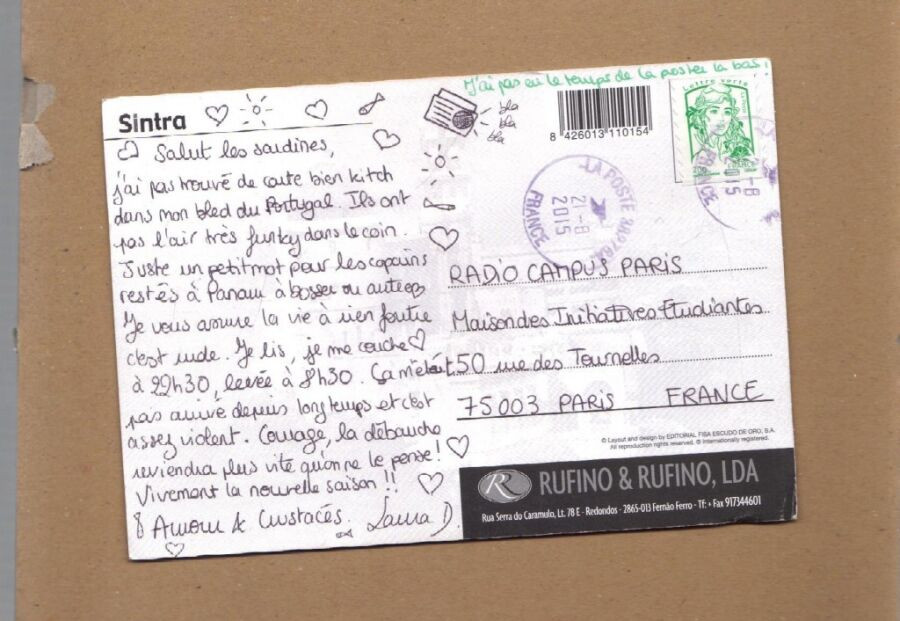 J'ai pas eu le temps de la poster la bas !
Sintra
bla
bla
bla
8 426013 110154
Lettre verte
LA POSTE
21-8
2015
FRANCE
21-8
2015
FRANCE
Salut les sardines,
j'ai pas trouvé de carte bien kitch
dans mon bled du Portugal. Ils ont
pas l'air très funky dans le coin.
Juste un petit mot pour les copains
restés à Panam à bosser ou autre
Je vous assure la vie à rien foutre
c'est rude. Je lis, je me couche
à 22h30, levée à 8h30. Ça m'était
pas arrivé depuis longtemps et c'est
assez violent. Courage, la débauche
reviendra plus vite qu'on ne le pense !
Vivement la nouvelle saison !!
Amour & Crustacés. Laura D.
RADIO CAMPUS PARIS
Maison des Initiatives Etudiantes
50 rue des Tournelles
75003 PARIS FRANCE
© Layout and design by EDITORIAL FISA ESCUDO DE ORO, S.A.
All reproduction rights reserved. ® Internationally registered.
R RUFINO & RUFINO, LDA
Rua Serra do Caramulo, Lt. 78 E - Redondos - 2865-013 Fernão Ferro - Tf: + Fax 917344601